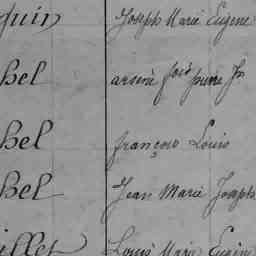 quin Joseph Marie Eugène
hel arsène fois pierre Jn
hel françois Louis
hel Jean Marie Joseph
illet Louis Marie Eugène